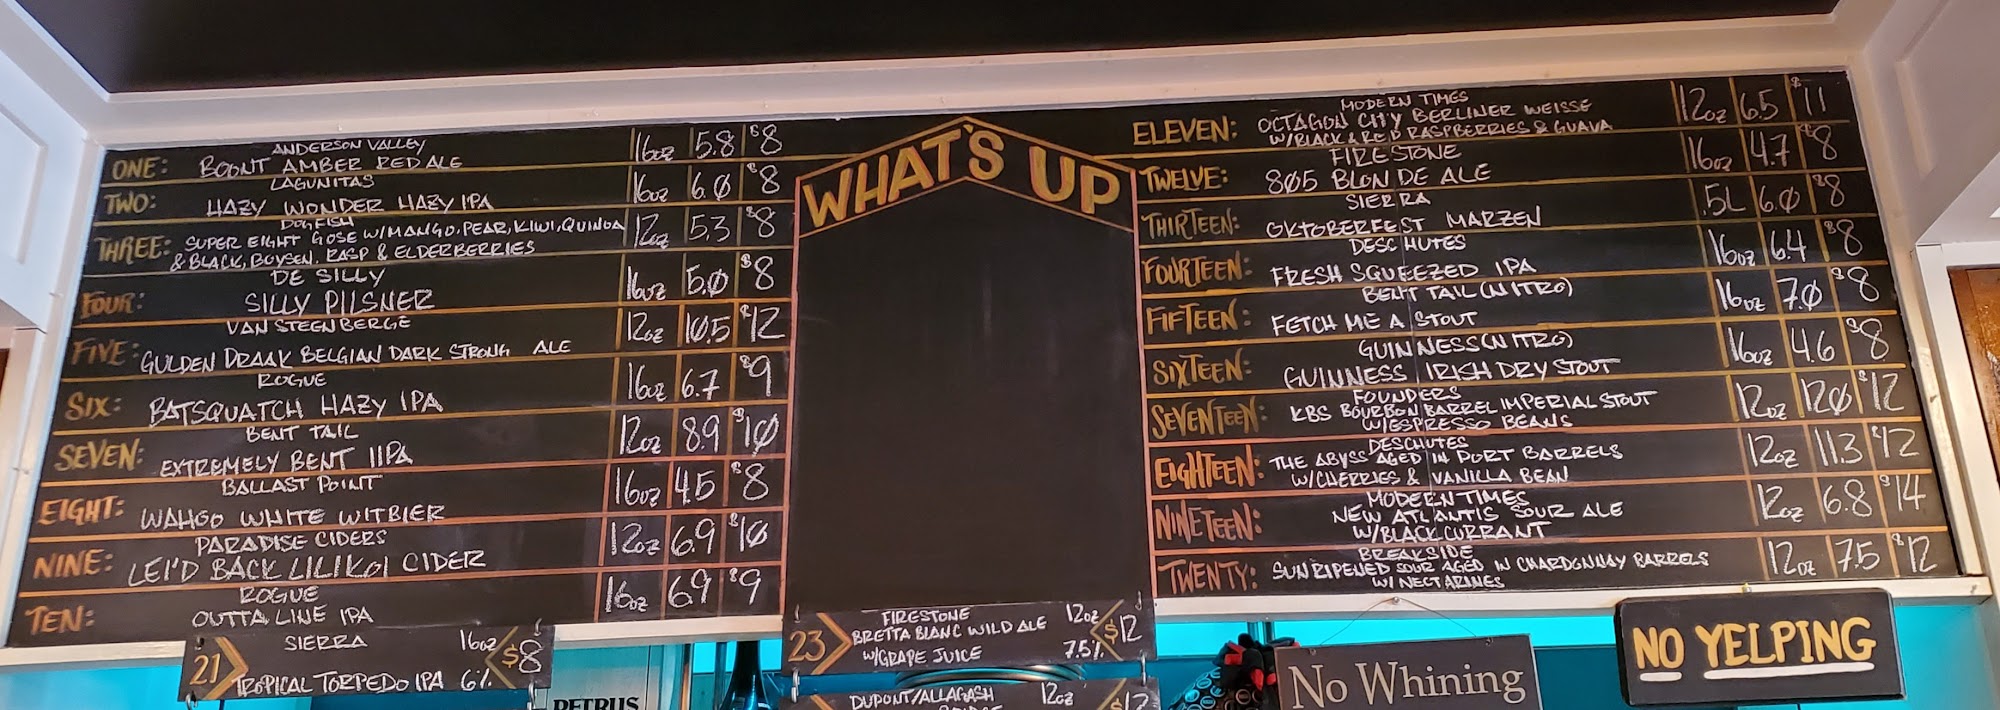 ANDERSON VALLEY
ONE: BOONT AMBER RED ALE 16oz 5.8 $8
LAGUNITAS
TWO: HAZY WONDER HAZY IPA 16oz 6.0 $8
DOGFISH
THREE: SUPER EIGHT GOSE W/MANGO, PEAR, KIWI, QUINOA 12oz 5.3 $8
& BLACK, BOYSEN, RASP & ELDERBERRIES
DE SILLY
FOUR: SILLY PILSNER 16oz 5.0 $8
VAN STEENBERGE
FIVE: GULDEN DRAAK BELGIAN DARK STRONG ALE 12oz 10.5 $12
ROGUE
SIX: BATSQUATCH HAZY IPA 16oz 6.7 $9
BENT TAIL
SEVEN: EXTREMELY BENT IIPA 12oz 8.9 $10
BALLAST POINT
EIGHT: WAHGO WHITE WITBIER 16oz 4.5 $8
PARADISE CIDERS
NINE: LEI'D BACK LILIKOI CIDER 12oz 6.9 $10
ROGUE
TEN: OUTTA LINE IPA 16oz 6.9 $9
WHAT'S UP
MODERN TIMES
ELEVEN: OCTAGON CITY BERLINER WEISSE 12oz 6.5 $11
W/BLACK & RED RASPBERRIES & GUAVA
FIRESTONE
TWELVE: 805 BLONDE ALE 16oz 4.7 $8
SIERRA
THIRTEEN: OKTOBERFEST MARZEN .5L 6.0 $8
DESCHUTES
FOURTEEN: FRESH SQUEEZED IPA 16oz 6.4 $8
BENT TAIL (NITRO)
FIFTEEN: FETCH ME A STOUT 16oz 7.0 $8
GUINNESS (NITRO)
SIXTEEN: GUINNESS IRISH DRY STOUT 16oz 4.6 $8
FOUNDERS
SEVENTEEN: KBS BOURBON BARREL IMPERIAL STOUT 12oz 12.0 $12
W/ESPRESSO BEANS
DESCHUTES
EIGHTEEN: THE ABYSS AGED IN PORT BARRELS 12oz 11.3 $12
W/CHERRIES & VANILLA BEAN
MODERN TIMES
NINETEEN: NEW ATLANTIS SOUR ALE 12oz 6.8 $14
W/BLACK CURRANT
BREAKSIDE
TWENTY: SUN RIPENED SOUR AGED IN CHARDONNAY BARRELS 12oz 7.5 $12
W/NECTARINES
21 SIERRA 16oz $8
TROPICAL TORPEDO IPA 6%
23 FIRESTONE 12oz $12
BRETTA BLANC WILD ALE
W/GRAPE JUICE 7.5%
DUPONT/ALLAGASH 12oz $12
PETRUS
No Whining
NO YELPING